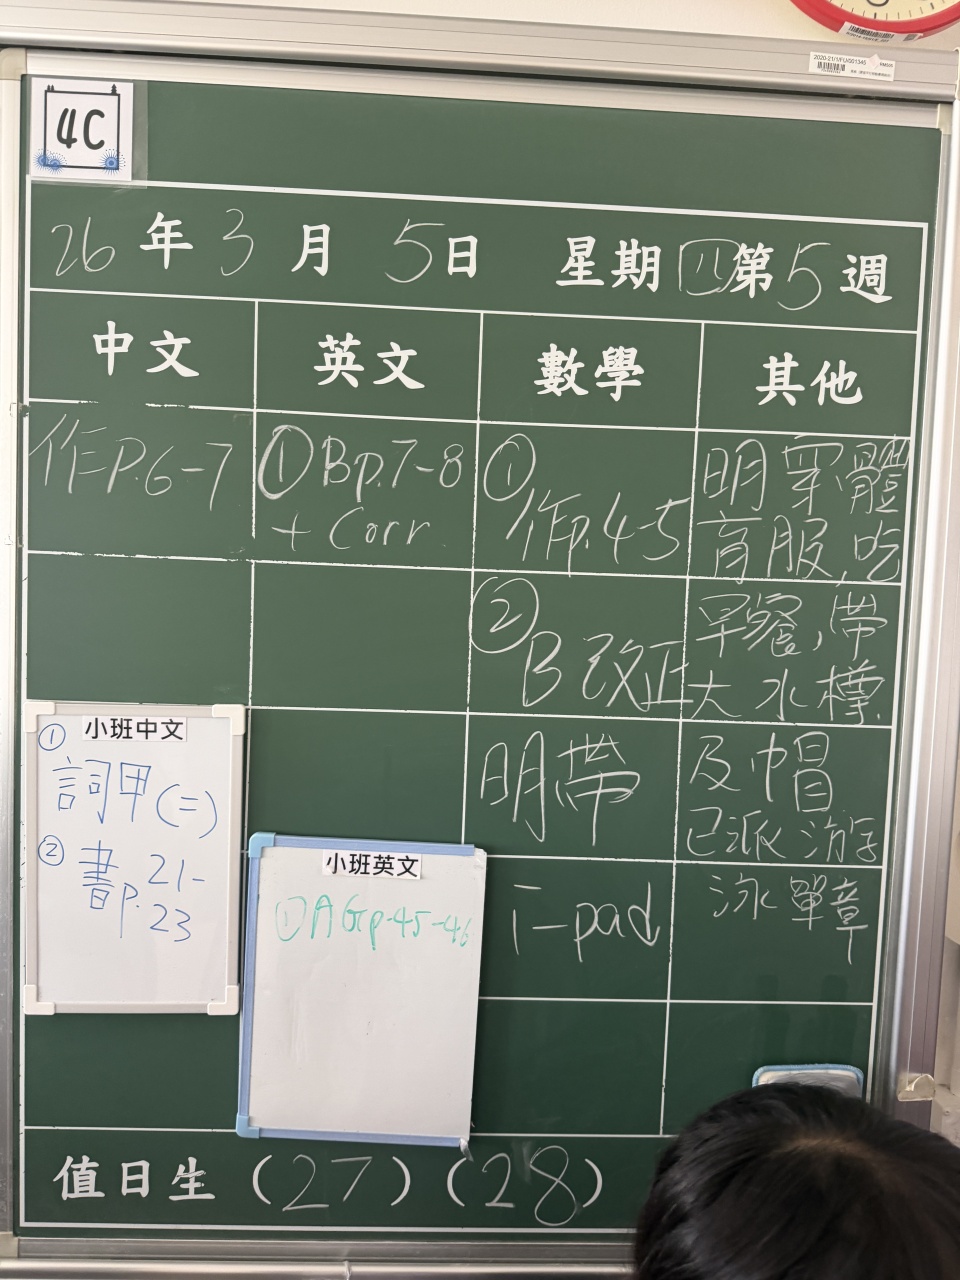 4C
26年3月5日 星期四第5週
中文 英文 數學 其他
作P.6-7
①Bp.7-8
+ Corr.
①
作p.4-5
②
B改正
明帶
i-pad
明穿體
育服,吃
早餐,帶
大水樽
及帽
已派游
泳單章
小班中文
①
詞甲(二)
②書p.21-
23
小班英文
①AGp.45-46
值日生(27)(28)